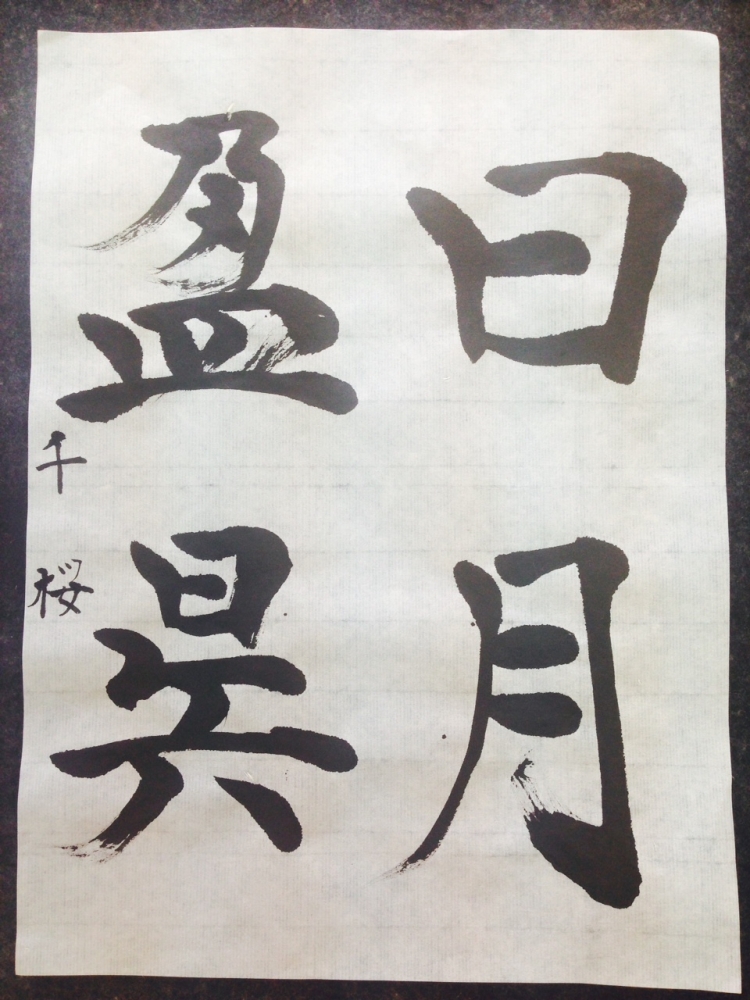 日月
盈昃
千桜